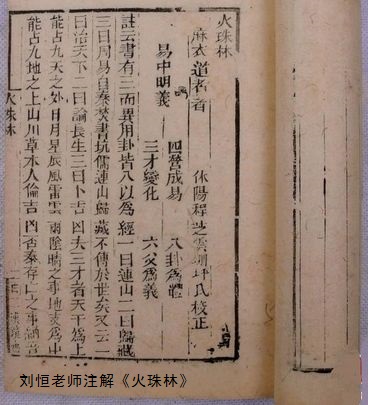 火珠林
麻衣道者著 休陽程芝雲潮坪氏校正
四營成易 八卦為體
易中明義
三才變化 六爻為義
註云書有三而異用卦皆八以為經一曰連山二曰歸藏
三曰周易自秦焚書坑儒連山歸藏不傳於世矣又云一
曰治天下二曰論長生三曰卜吉凶夫三才者天為上
能占九天之外日月星辰風雷雲雨陰晴之事地支為中
能占九地之上山川草木人倫吉凶否泰存亡之事納音
火珠林
刘恒老师注解《火珠林》